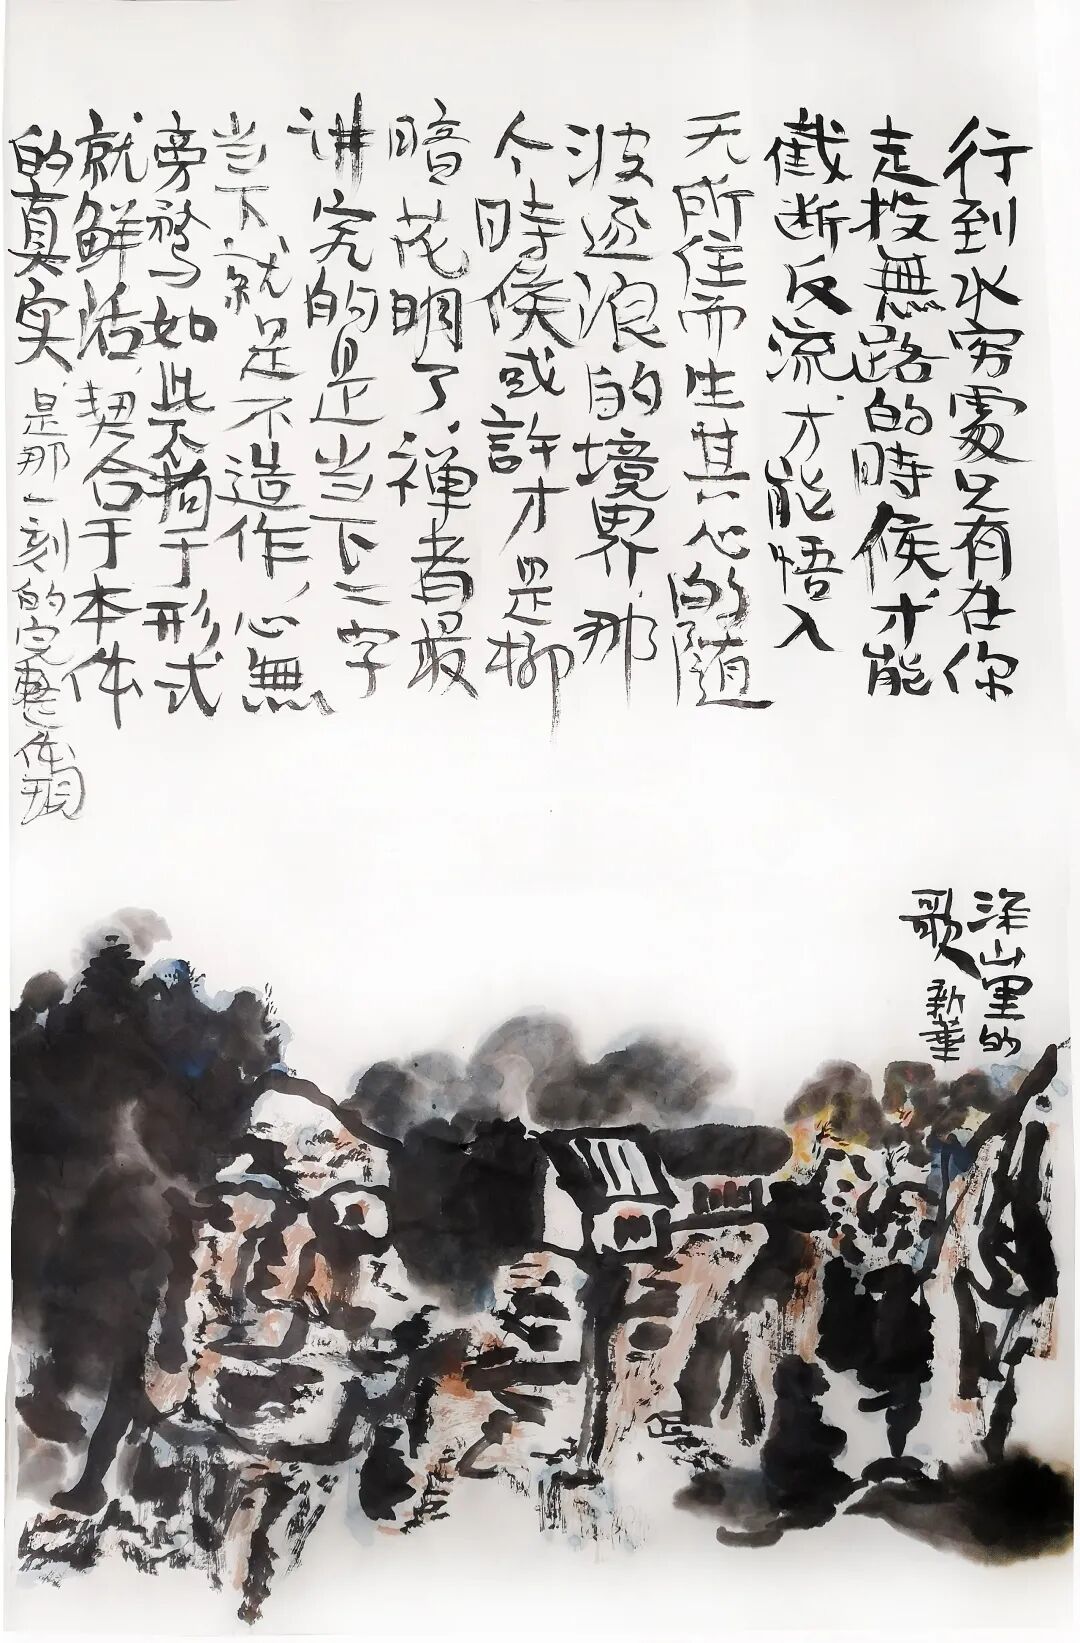 行到水穷處只有在你
走投無路的時候才能
截断反流、才能悟入
无所住而生其心的随
波逐浪的境界、那
个時候或許才是柳
暗花明了、禅者最
讲究的是当下二字
当下就是不造作、心無
旁骛如此不拘于形式
就鲜活、契合于本体
的真实、是那一刻的完整体现
深山里的
歌 新華